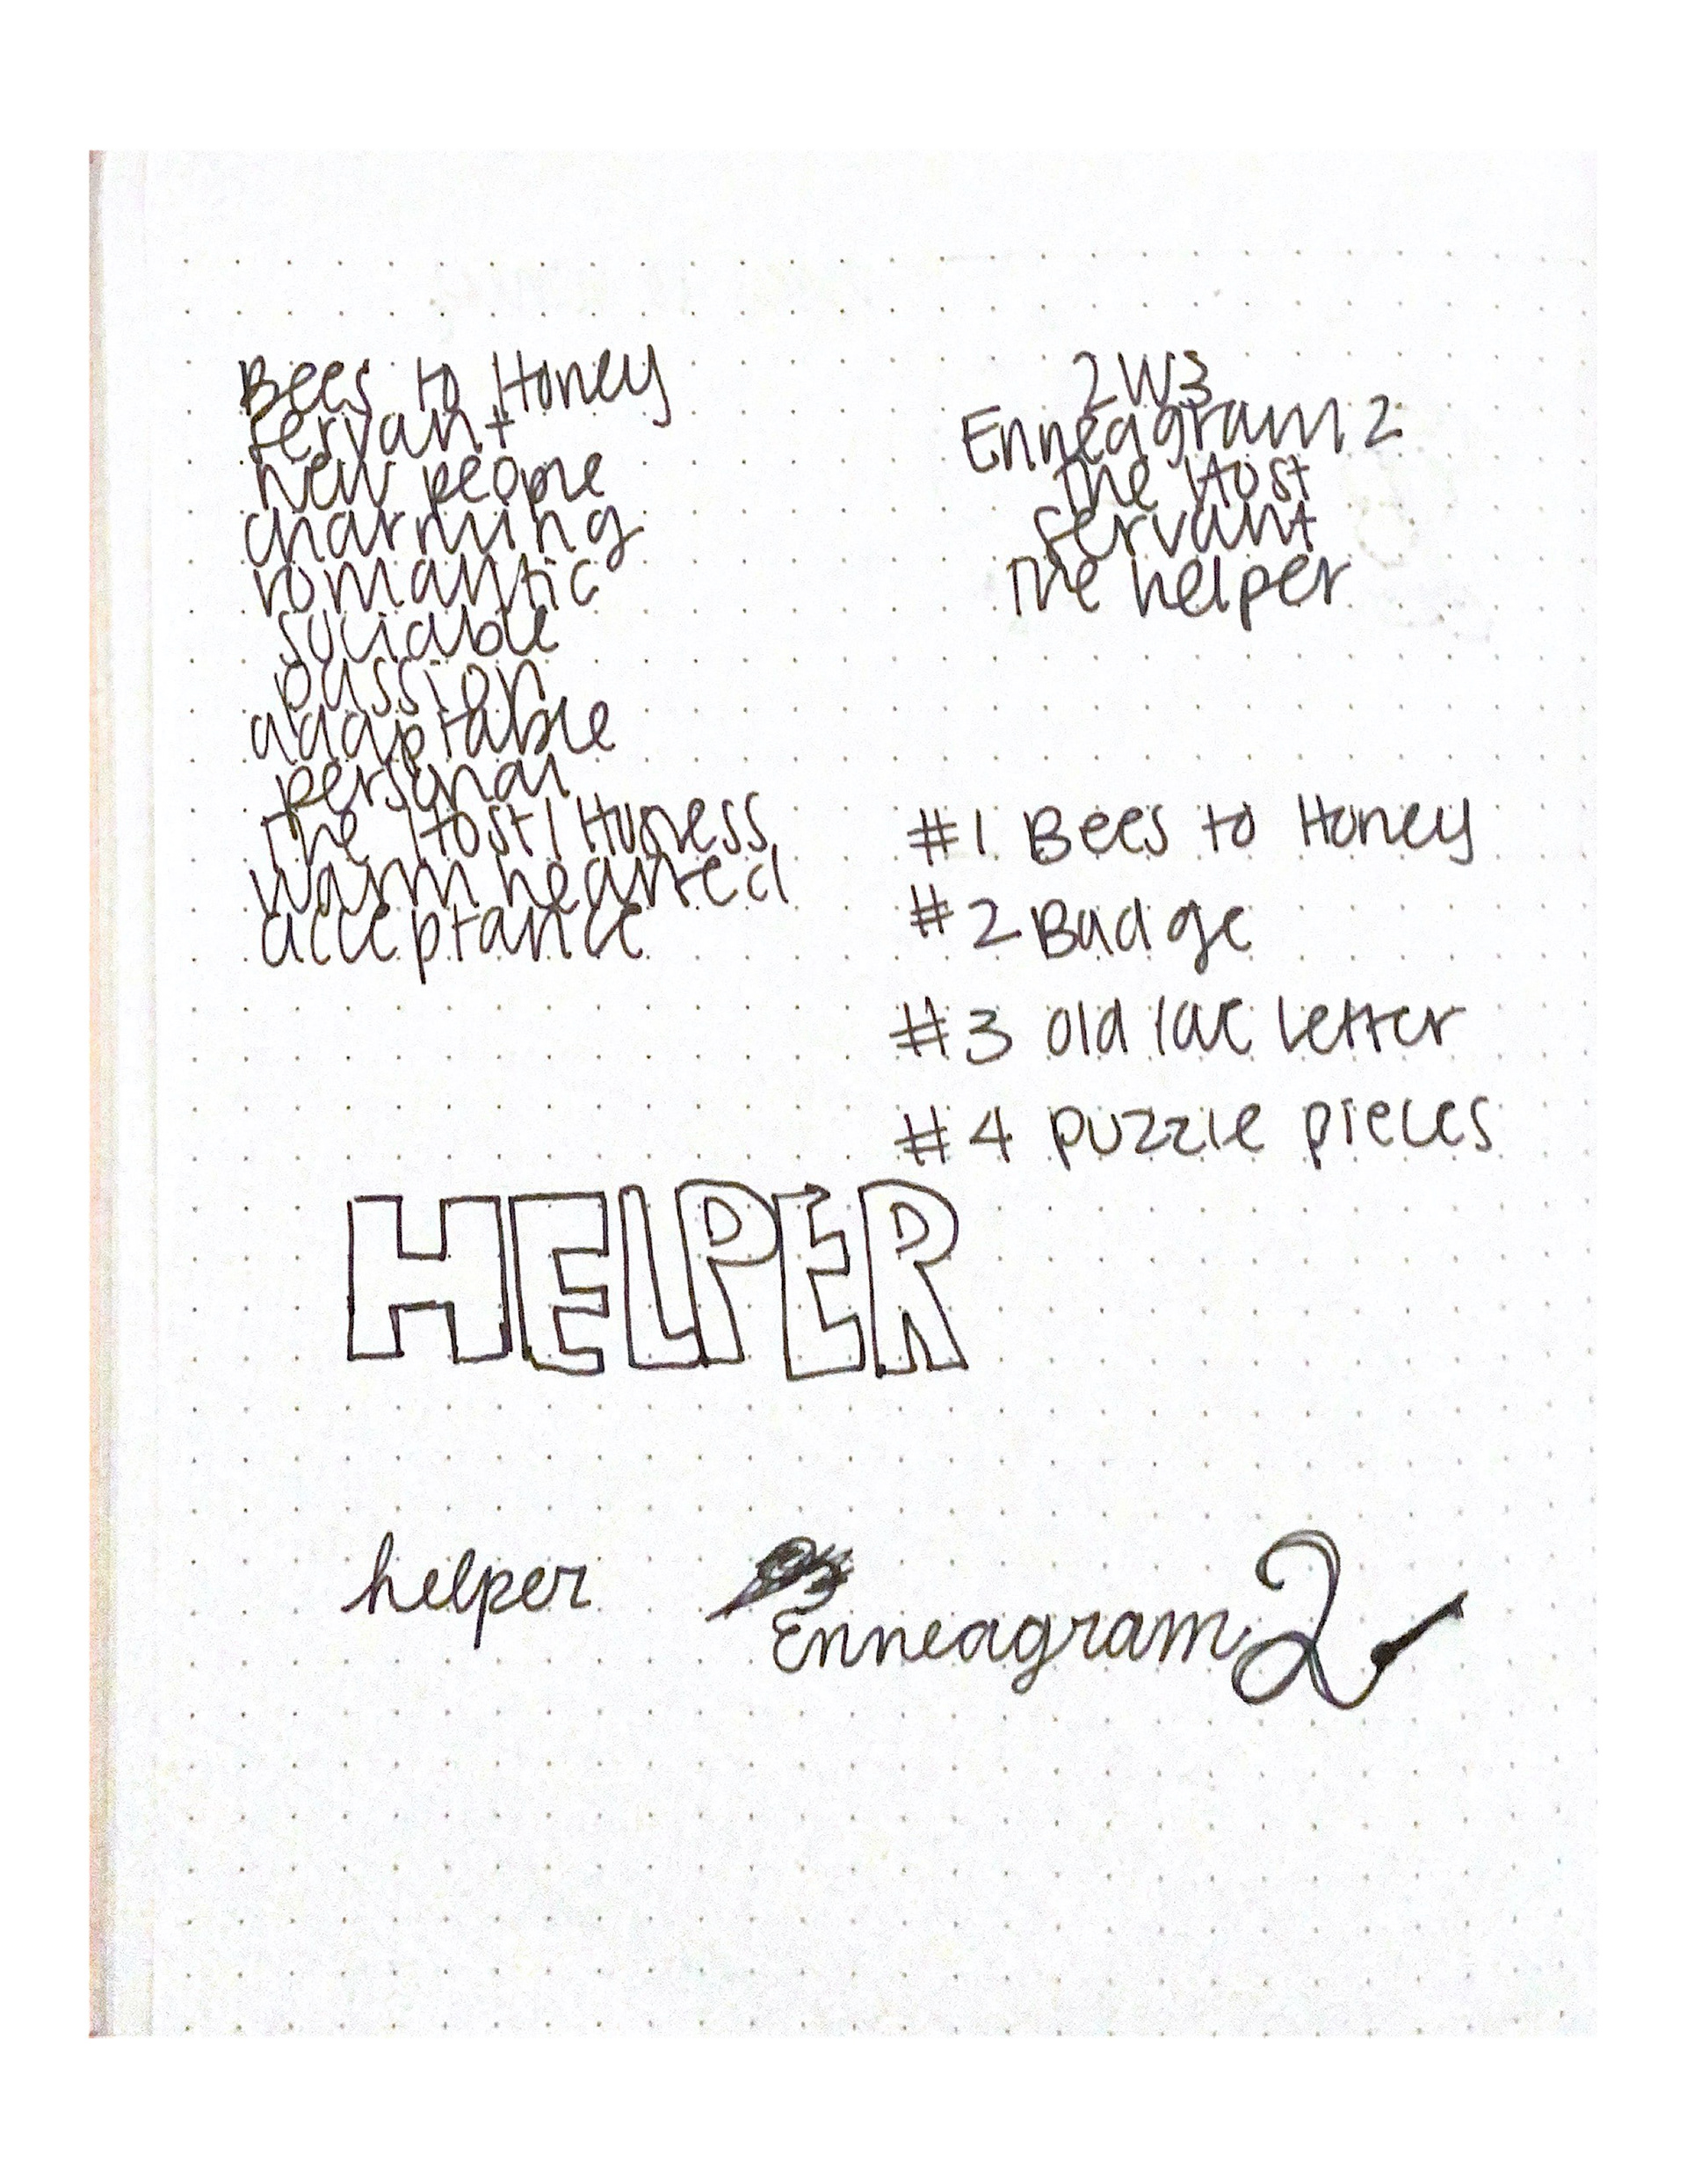 Bees to Honey
servant
new people
charming
romantic
sociable
passion
adaptable
personal
The Host/Hostess
warm hearted
acceptance
2W3
Enneagram 2
The Host
servant
The helper
#1 Bees to Honey
#2 Badge
#3 Old lac Letter
#4 puzzle pieces
HELPER
helper
Enneagram 2